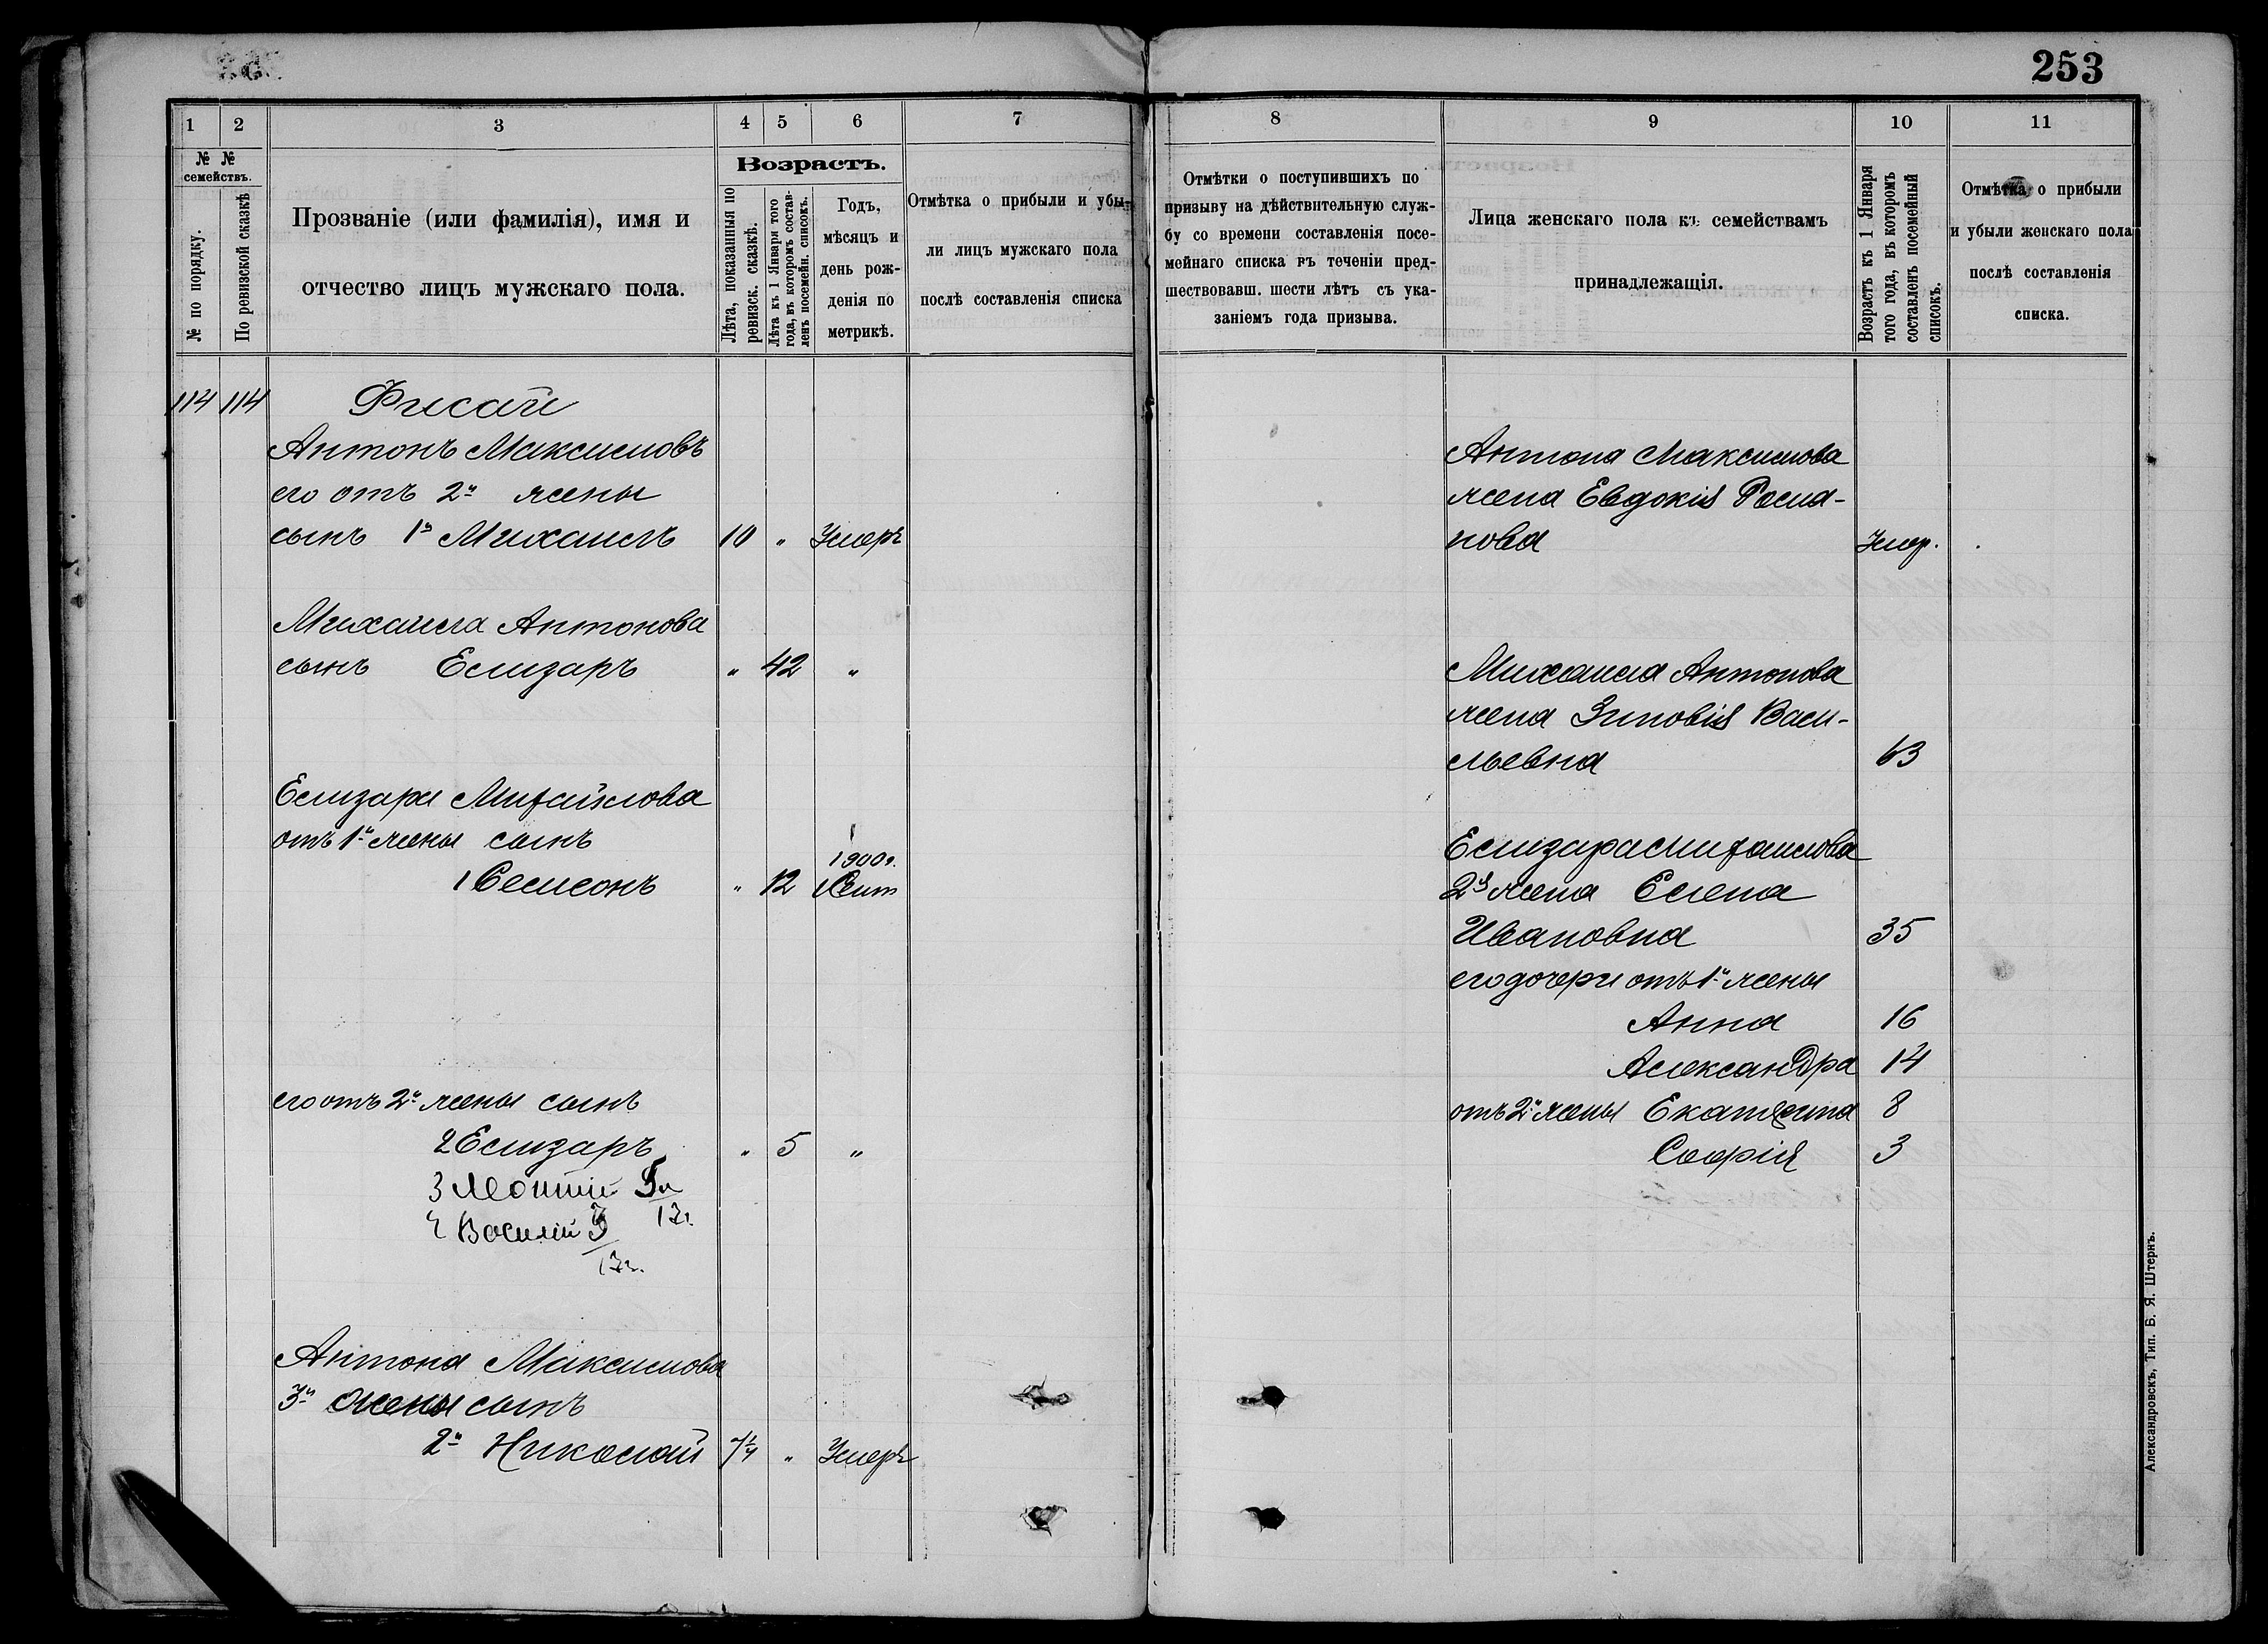 253
1 2 3 4 5 6 7
№ № семействъ.
№ по порядку.
По ревизской сказкѣ
Прозваніе (или фамилія), имя и
отчество лицъ мужскаго пола.
Возрастъ.
Лѣта, показанныя по
ревизск. сказкѣ.
Лѣта къ 1 Января того
года, въ которомъ состав-
ленъ посемейн. списокъ.
Годъ,
мѣсяцъ и
день рож-
денія по
метрикѣ.
Отмѣтка о прибыли и убы-
ли лицъ мужскаго пола
послѣ составленія списка
114 114 Фисай
Антонъ Максимовъ
его отъ 2й жены
сынъ 1й Михаилъ 10 " Умеръ
Михаила Антонова
сынъ Елизаръ " 42 "
Елизара Михайлова
отъ 1й жены сынъ
1900г.
1 Семсонъ " 12 Сент
его отъ 2й жены сынъ
2 Елизаръ " 5 "
3 Леонтій
12г.
4 Василій
13г.
Антона Максимова
3й жены сынъ
2й Николай " Умеръ
8 9 10 11
Отмѣтки о поступившихъ по
призыву на дѣйствительную служ-
бу со времени составленія посе-
мейнаго списка въ теченіи пред-
шествовавш. шести лѣтъ съ ука-
заніемъ года призыва.
Лица женскаго пола къ семействамъ
принадлежащія.
Возрастъ къ 1 Января
того года, въ которомъ
составленъ посемейный
списокъ.
Отмѣтка о прибыли
и убыли женскаго пола
послѣ составленія
списка.
Антона Максимова
жена Евдокія Рома-
нова Умер.
Михаила Антонова
жена Зиновія Васи-
льевна 63
Елизара Михаилова
2я жена Елена
Ивановна 35
его дочери отъ 1й жены
Анна 16
Александра 14
отъ 2й жены Екатерина 8
Софія 3
Александровскъ, Тип. Б. Я. Штернъ.